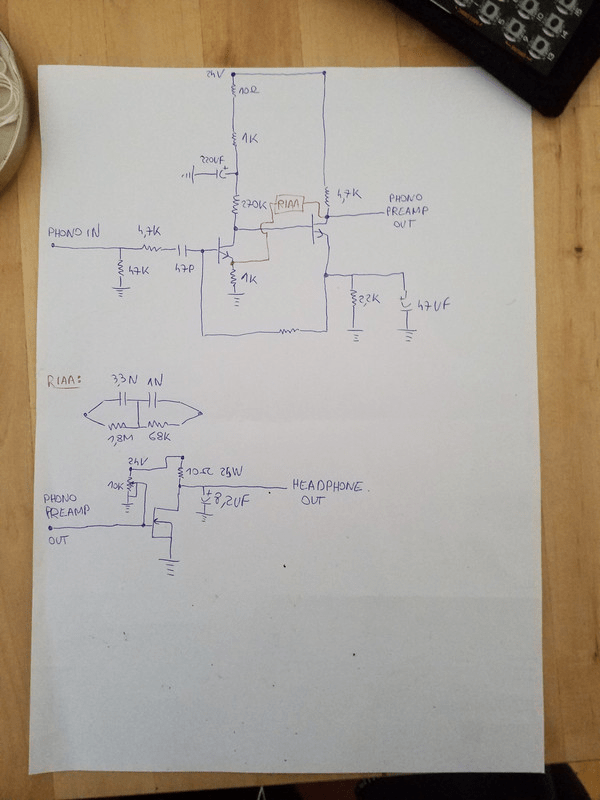 24V
10Ω
1K
220UF
270K
RIAA
4,7K
PHONO
PREAMP
OUT
PHONO IN
4,7K
47K
47P
1K
2,2K
47UF
RIAA:
3,3N 1N
1,8M 68K
24V
10K
10Ω 25W
PHONO
PREAMP
OUT
8,2UF
HEADPHONE
OUT